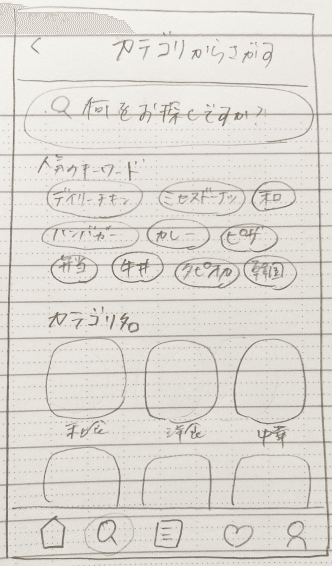 カテゴリからさがす
何をお探しですか?
人気のキーワード
デイリーチキン ミセスドーナッツ 和
ハンバーガー カレー ピザ
弁当 牛丼 タピオカ 韓国
カテゴリ名
和食 洋食 中華